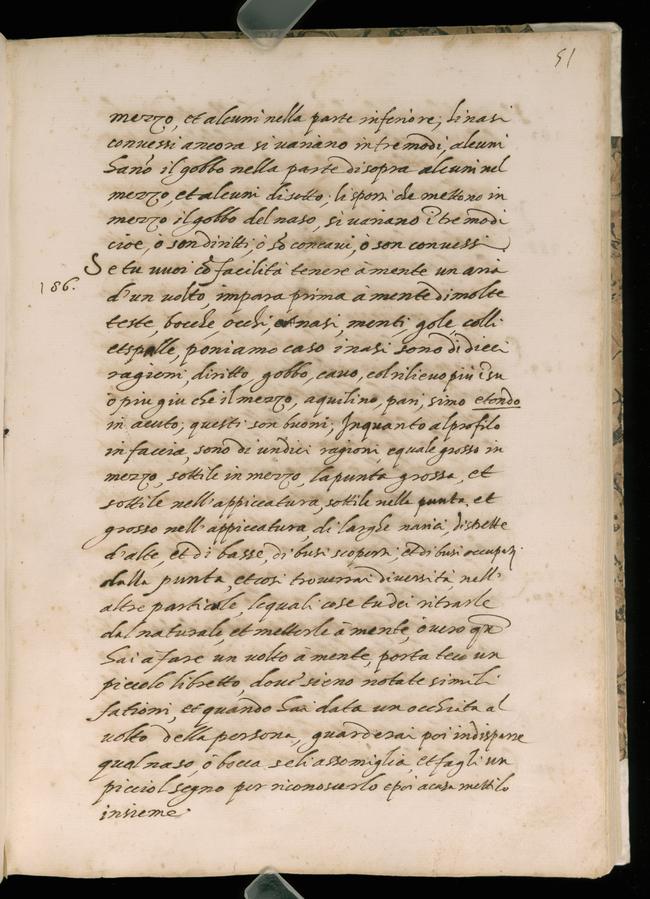 51
mezzo, et alcuni nella parte inferiore; li nasi
convessi ancora si variano in tre modi, alcuni
hanō il gobbo nella parte di sopra alcuni nel
mezzo, et alcuni di sotto; li sporti che mettono in
mezzo il gobbo del naso, si variano ĩ tre modi
cioè, ò son diritti, ò sō concavi, ò son convessi
186.
Se tu vuoi cō facilità tenere à mente un aria
d'un volto, impara prima à mente di molte
teste, bocche, occhi, nasi, menti gole colli
et spalle, poniamo caso i nasi sono di dieci
ragioni, diritto, gobbo, cavo, col rilievo più ĩ su
ò piu giu che il mezzo, aquilino, pari, simo e tondo
in acuto; questi son buoni; Inquanto al profilo
in faccia, sono di undici ragioni equale grosso in
mezzo, sottile in mezzo, la punta grossa, et
sottile nell'appiccatura, sottile nella punta, et
grosso nell'appiccatura, di larghe narici, di strette
d'alte, et di basse, di busi scoperti, et di busi occupati
dalla punta, et così troverrai diversità nell'
altre particole, le quali cose tu dei ritrarle
dal naturale, et metterle à mente, overo qñ
hai a fare un volto à mente, porta teco un
piccolo libretto, dove sieno notate simili
fationi, et quando hai data un occhiata al
volto della persona, guarderai poi in disparte
qual naso, ò bocca se li assomiglia, et fagli un
picciol segno per riconoscerlo e poi a casa mettilo
insieme